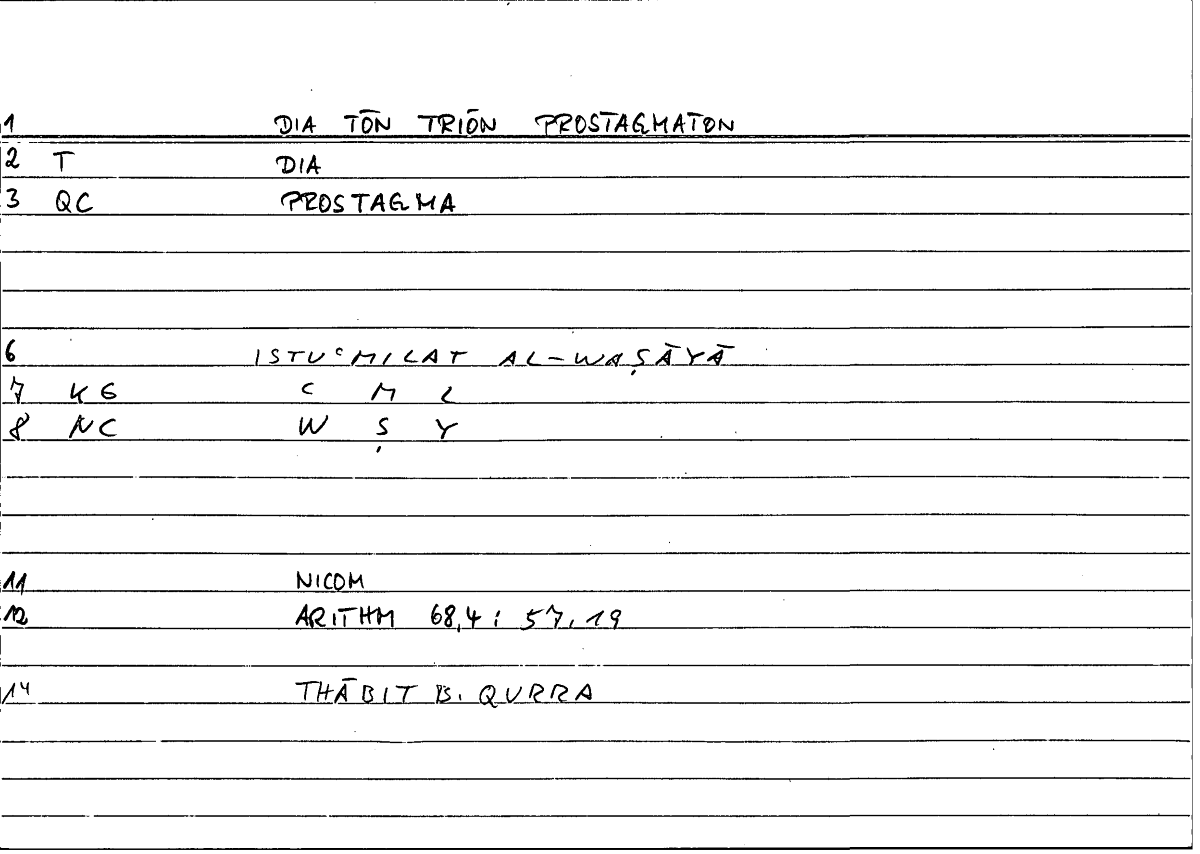 1 DIA TŌN TRIŌN PROSTAGMATŌN
2 T DIA
3 QC PROSTAGMA
6 ISTUᶜMILAT AL-WAṢĀYĀ
7 KG C M L
8 NC W Ṣ Y
11 NICOM
12 ARITHM 68,4 : 57,19
14 THĀBIT B. QURRA